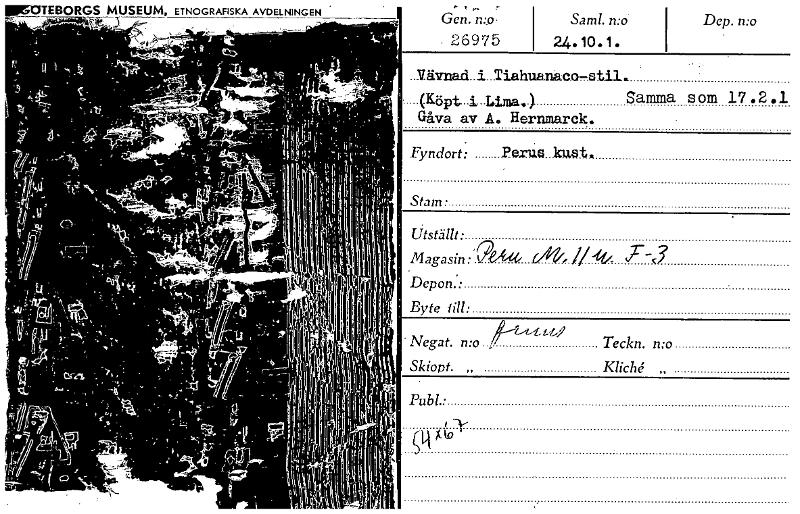 GÖTEBORGS MUSEUM, ETNOGRAFISKA AVDELNINGEN
Gen. n:o Saml. n:o Dep. n:o
26975 24.10.1.
Vävnad i Tiahuanaco-stil.
(Köpt i Lima.) Samma som 17.2.1
Gåva av A. Hernmarck.
Fyndort: Perus kust.
Stam:
Utställt:
Magasin: Peru M. 11 u. F-3
Depon.:
Byte till:
Negat. n:o finnes Teckn. n:o
Skiopt. „ Kliché „
Publ.:
54x67